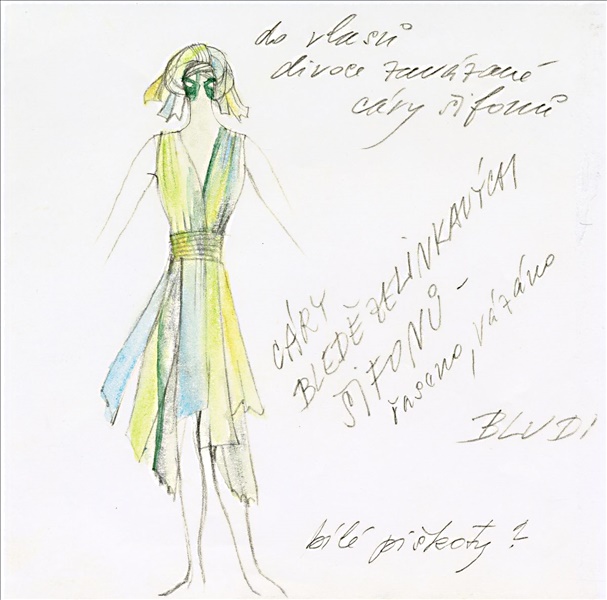 do vlasů
divoce zavázané
cáry šifonů
CÁRY
BLEDĚZELINKAVÝCH
ŠIFONŮ -
řaseno, vázáno
BLUDI
bílé piškoty ?